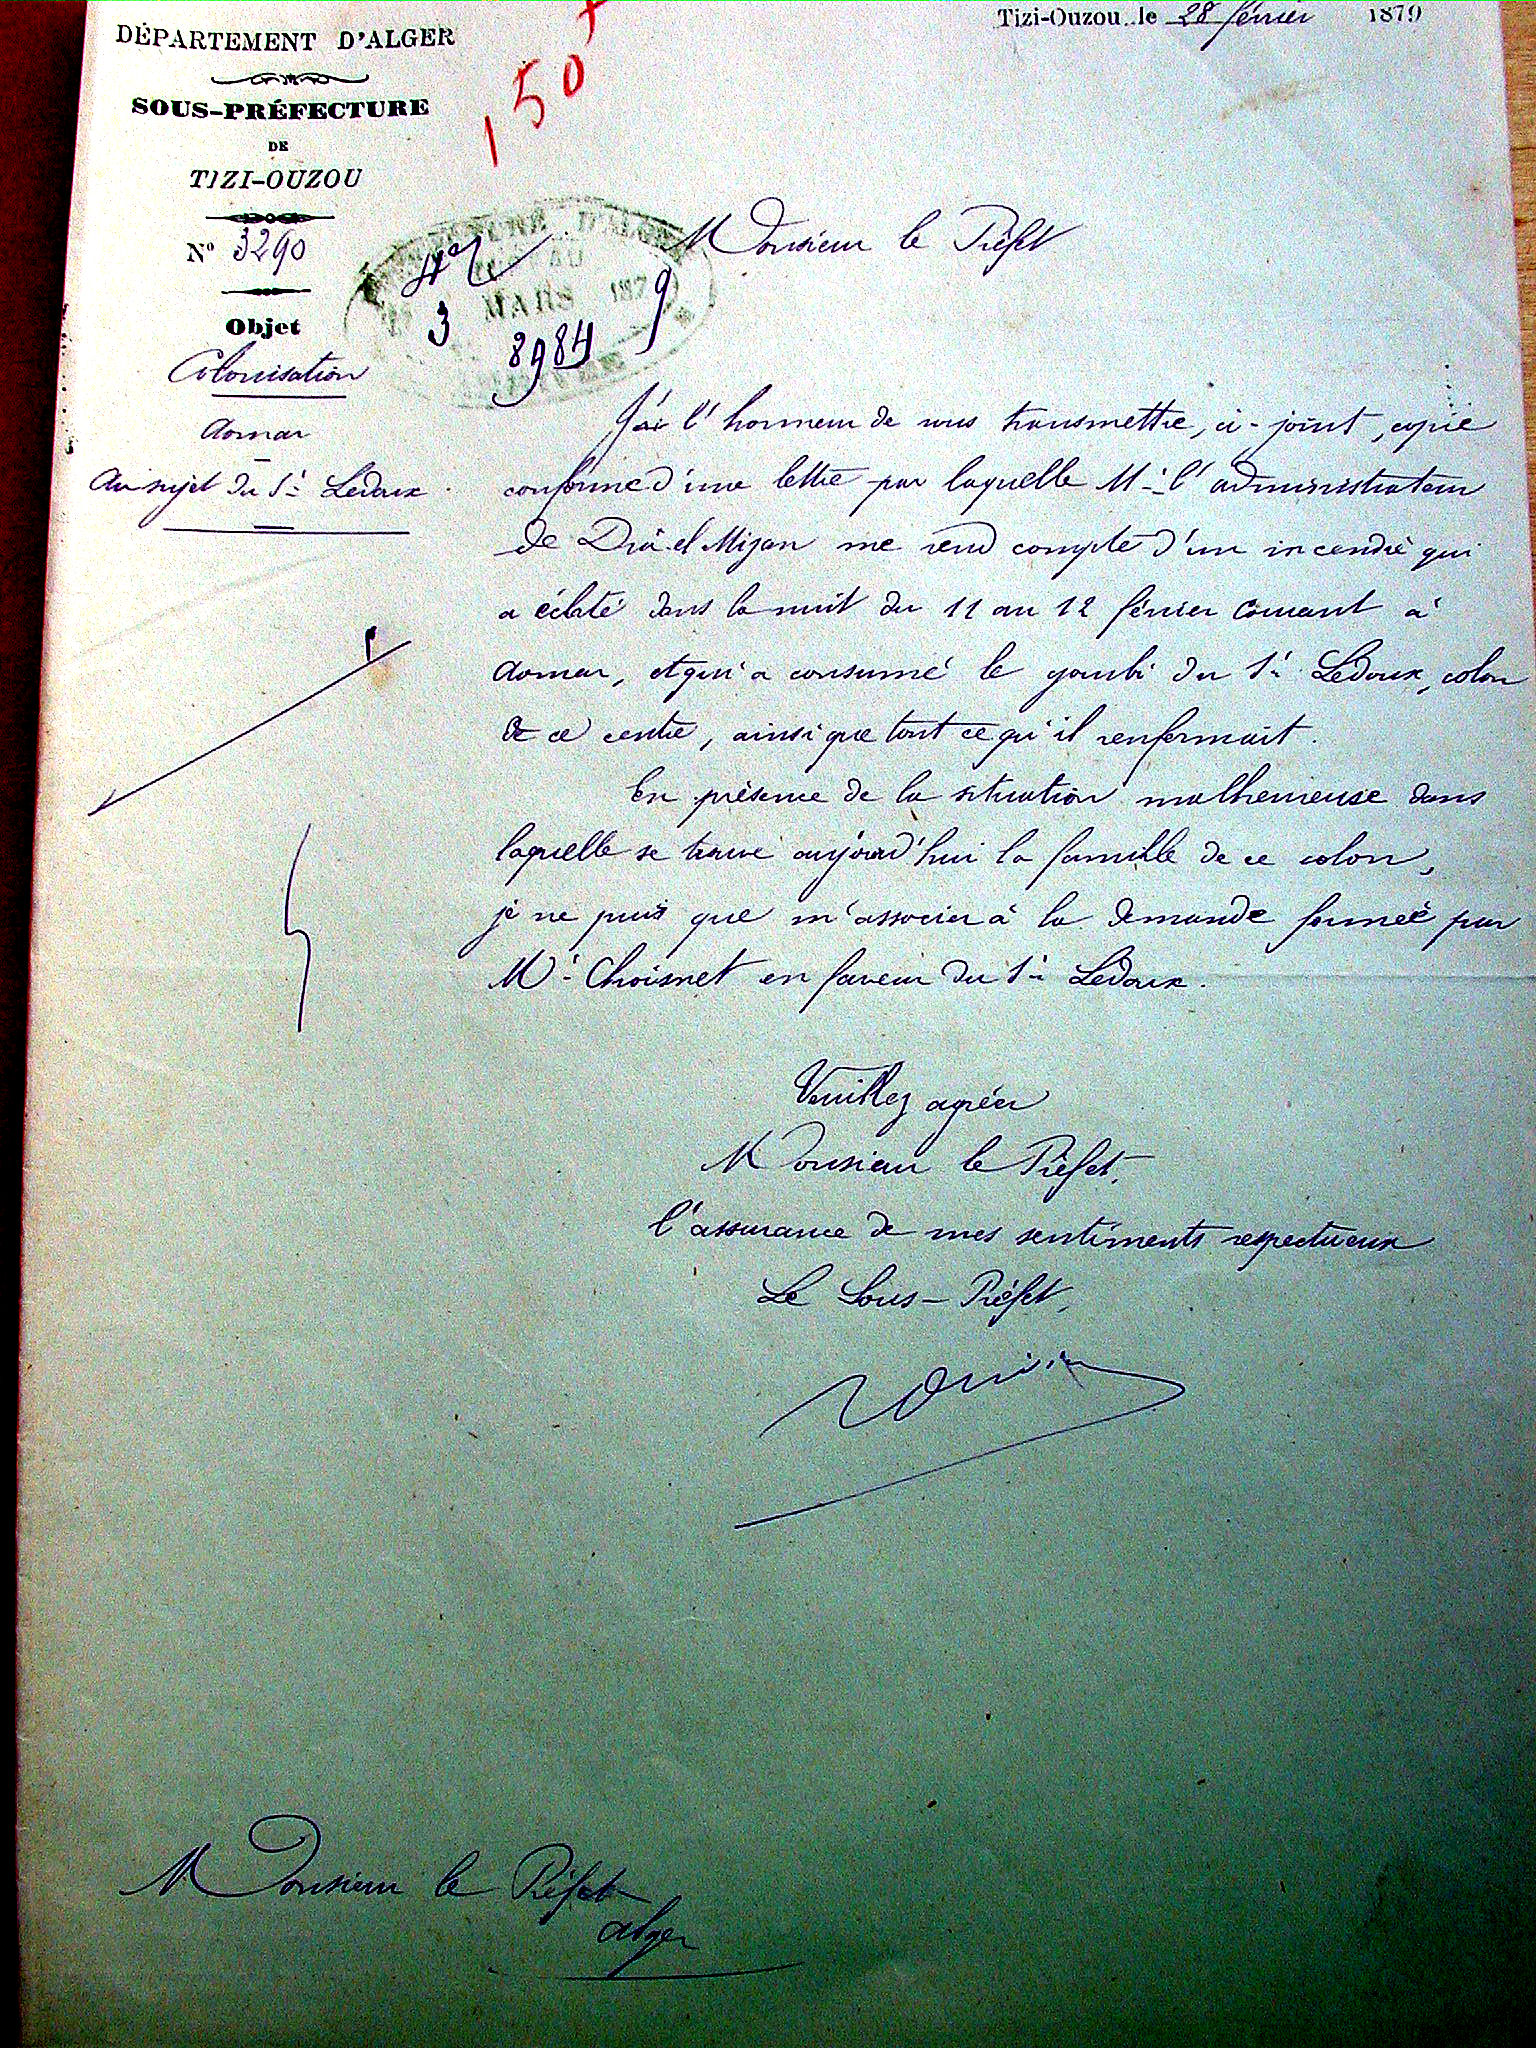 Tizi-Ouzou, le 28 février 1879
DÉPARTEMENT D'ALGER
150 +
SOUS-PRÉFECTURE
DE
TIZI-OUZOU
Nº 3290
Monsieur le Préfet
D'ALGER
MARS 187
3 9
8984
Objet
Colonisation
Aomar
Au sujet du Sr Ledoux
J'ai l'honneur de vous transmettre, ci-joint, copie
conforme d'une lettre par laquelle Mr l'administrateur
de Drâ el Mizan me rend compte d'un incendie qui
a éclaté dans la nuit du 11 au 12 février courant à
Aomar, et qui a consumé le gourbi du Sr Ledoux, colon
de ce centre, ainsi que tout ce qu'il renfermait.
En présence de la situation malheureuse dans
laquelle se trouve aujourd'hui la famille de ce colon,
je ne puis que m'associer à la demande formée par
Mr Choisnet en faveur du Sr Ledoux.
Veuillez agréer
Monsieur le Préfet,
l'assurance de mes sentiments respectueux
Le Sous-Préfet,
Monsieur le Préfet
Alger